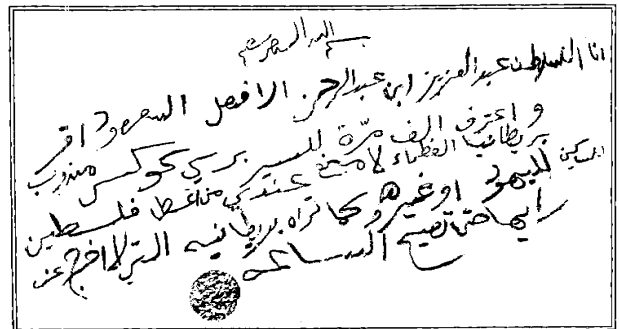 بسم الله الرحمن الرحيم
انا السلطان عبدالعزيز ابن عبدالرحمن الافصل السعود اقر
واعترف الف مرة للسير برسي كوكس مندوب
بريطانيا العظماء لا مانع عندي من اعطا فلسطين
المساكين لليهود او غيرهم وكما تراه بريطانيه التي لا اخرج عن
رايها حتى تصيح الساعه